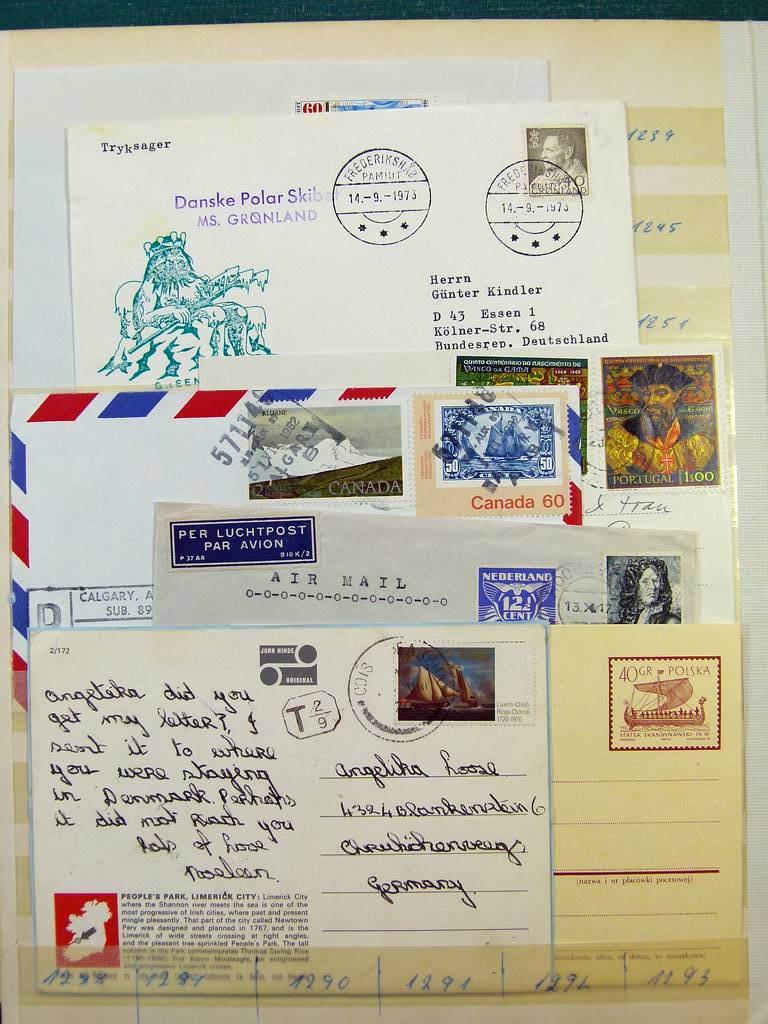 60
Tryksager
FREDERIKSHÅB
PAMIUT
14.-9.-1973
FREDERIKSHÅB
14.-9.-1973
GRØNLAND
1239
Danske Polar Skibe
MS. GRØNLAND
1245
Herrn
Günter Kindler
D 43 Essen 1
Kölner-Str. 68
Bundesrep. Deutschland
1251
GREEN
QUINTO CENTENÁRIO DO NASCIMENTO DE
VASCO DA GAMA
1469 1969
QUINTO CENTENÁRIO DO NASCIMENTO DE
VASCO GAMA
PORTUGAL 1$00
KLUANE
571140
1982
CALGARY
$2 CANADA
CANADA
50 50
Canada 60
PER LUCHTPOST
PAR AVION
P 37 AA B 10 K/2
AIR MAIL
o-o-o-o-o-o-o-o-o-o-o-o
NEDERLAND
12½
CENT
13.X
CALGARY, A
SUB. 89
D
2/172
JOHN HINDE
ORIGINAL
T 2/9
Luann-Chlub
Ríoga Chorcaí
1720-1970
angelika did you
get my letter? I
sent it to where
you were staying
in Denmark. Perhaps
it did not reach you
lots of love
noeleen.
angelika loose
4324 Blankenstein
Germany
40 GR POLSKA
STATEK SKANDYNAWSKI IX W.
(nazwa i nr placówki pocztowej)
PEOPLE'S PARK, LIMERICK CITY: Limerick City
where the Shannon river meets the sea is one of the
most progressive of Irish cities, where past and present
mingle pleasantly. That part of the city called Newtown
Pery was designed and planned in 1767, and is the
Limerick of wide streets crossing at right angles,
and the pleasant tree-sprinkled People's Park. The tall
column in the Park commemorates Thomas Spring Rice
(1790-1866) first Baron Monteagle, an enlightened
and progressive Limerick citizen.
1290 1291 1292 1293